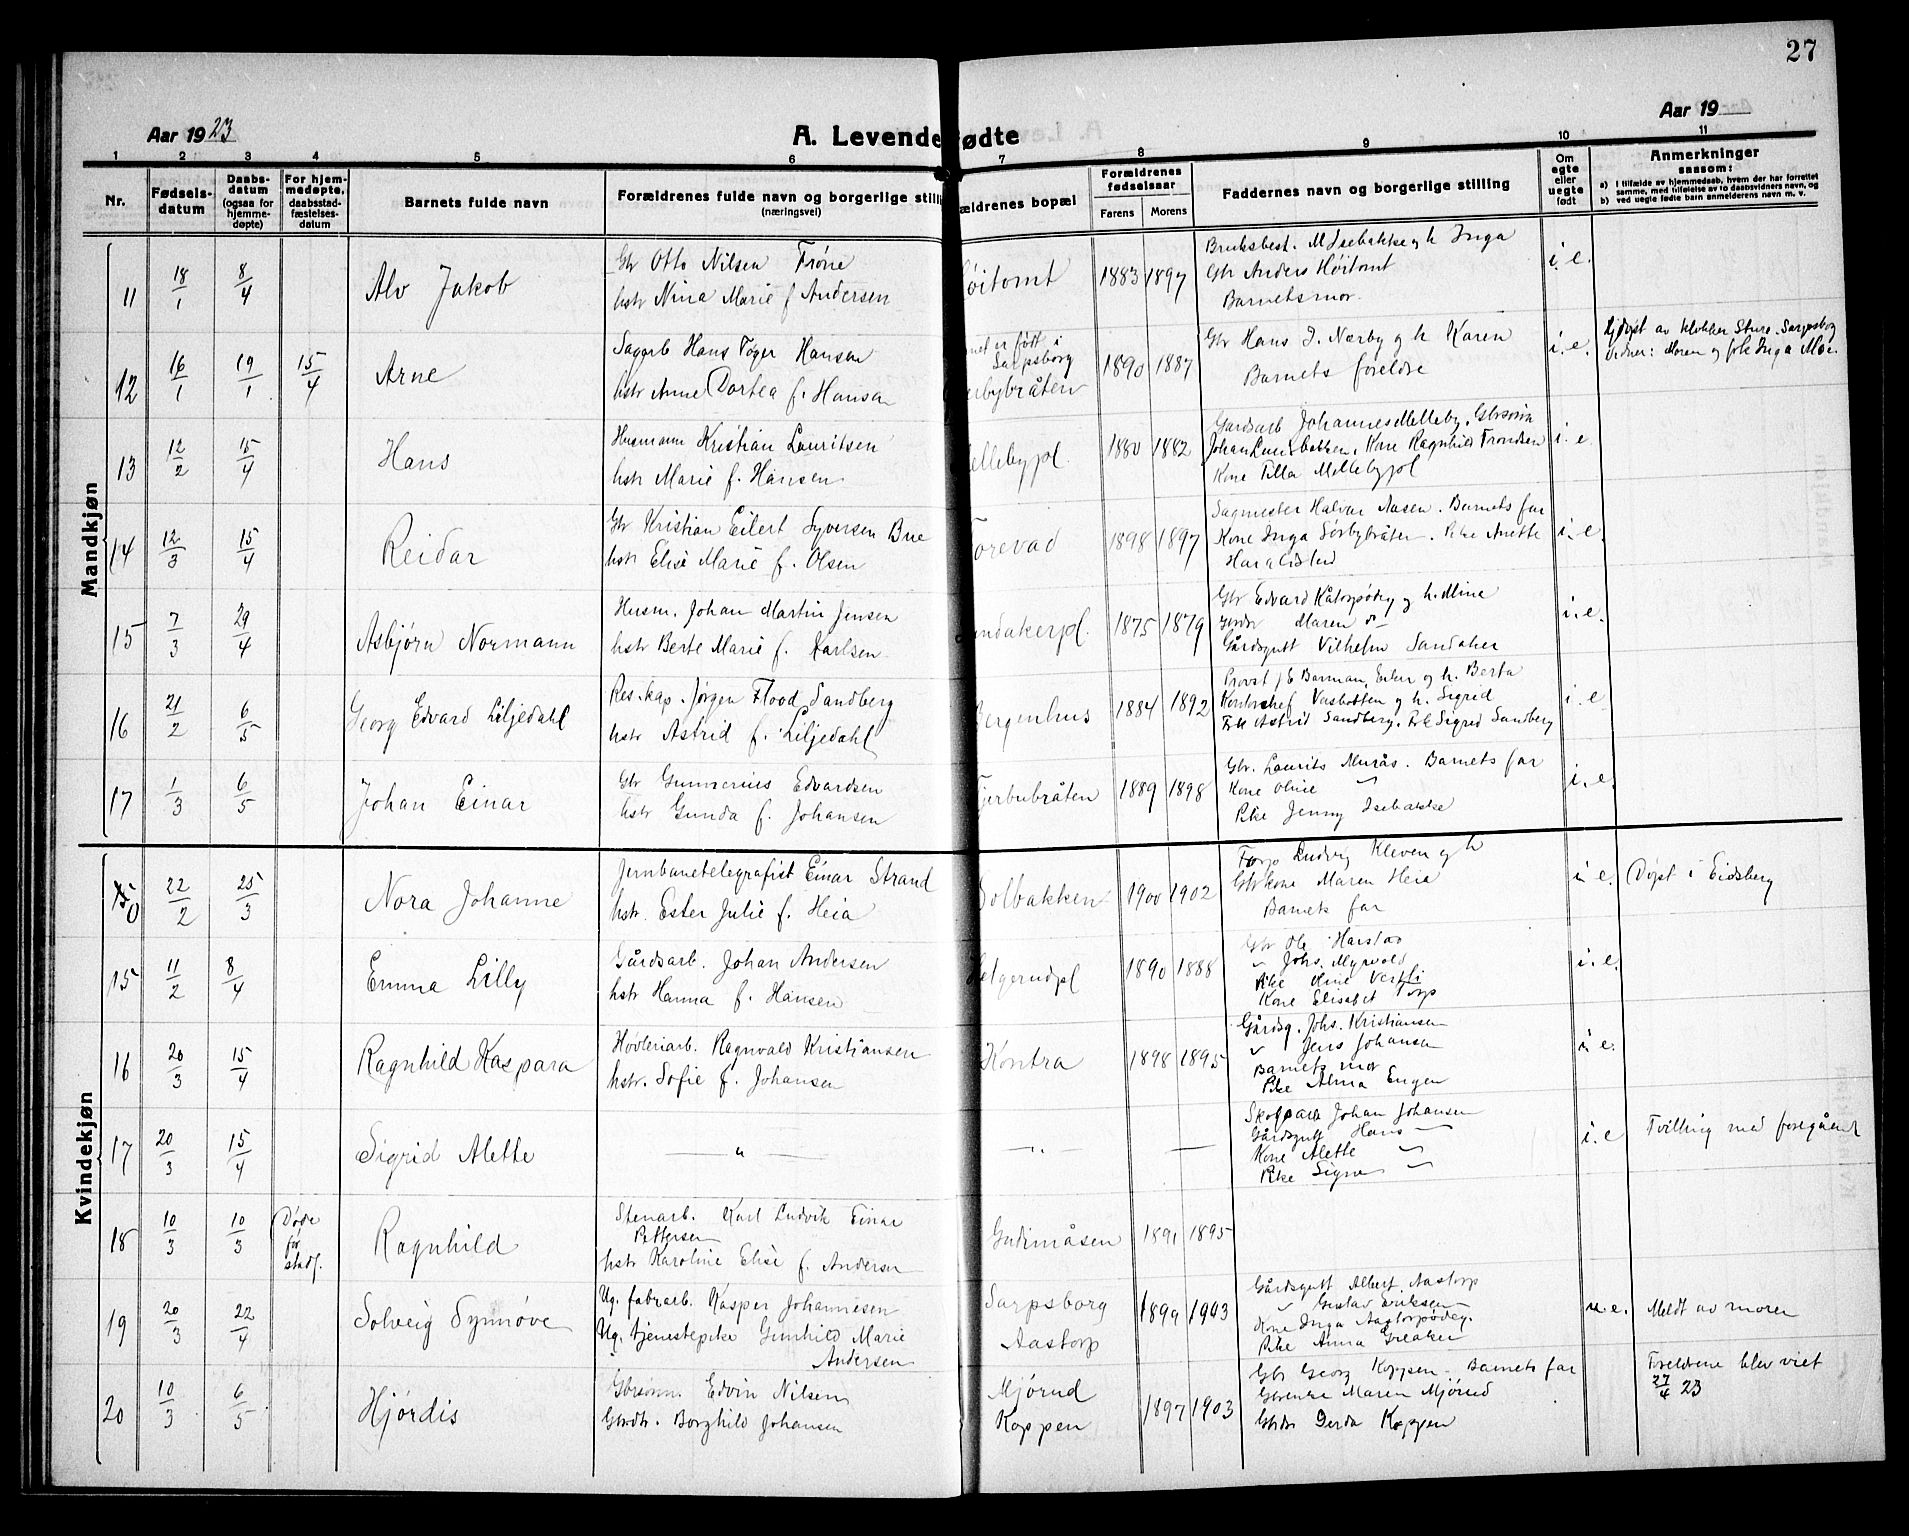 27
Aar 1923
Aar 19
A. Levendefødte
1 2 3 4 5 6 7 8 9 10 11
Nr.
Fødsels-
datum
Daabs-
datum
(ogsaa for
hjemme-
døpte)
For hjem-
medøpte,
daabsstad-
fæstelses-
datum
Barnets fulde navn
Forældrenes fulde navn og borgerlige stilli
(næringsvei)
ældrenes bopæl
Forældrenes
fødselsaar
Farens Morens
Faddernes navn og borgerlige stilling
Om
egte
eller
uegte
født
Anmerkninger
saasom:
a) I tilfælde av hjemmedaab, hvem der har forrettet
samme, med tilføielse av to daabsvidners navn, og
b) ved uegte fødte barn anmelderens navn m. v.
Mandkjøn
11 18/1 8/4 Alv Jakob
Gbr Otto Nilsen Trøne
hstr Nina Marie f Andersen
øitomt 1883 1897
Bruksbest. M Isebakke og h Inga
Gbr Anders Høitomt
Barnets mor.
i. e.
12 16/1 19/1 15/4 Arne
Sagarb Hans Tøger Hansen
hstr Anne Dortea f. Hansen
net er født i
Sarpsborg
bybråten 1890 1887
Gbr Hans J. Nærby og h Karen
Barnets foreldre
i. e.
Hjdøpt av klokker Sture, Sarpsborg
Vidner: Moren og frk Inga Moe.
13 12/2 15/4 Hans
Husmann Kristian Lauritsen
hstr Marie f. Hansen
ellebypl. 1880 1882
Gardsarb Johannes Melleby, Gbrsønn
Johan Lundebakken, Kone Ragnhild Trondsen
Kone Tilla Mellebypl
i. e.
14 12/3 15/4 Reidar
Gbr Kristian Eilert Syversen Bue
hstr Elise Marie f. Olsen
orevad 1898 1897
Sagmester Halvar Aasen. Barnets far
Kone Inga Sørbybråten. Pike Anette
Haraldstad
i. e.
15 7/3 29/4 Asbjørn Normann
Husm. Johan Martin Jensen
hstr Berte Marie f. Karlsen
ndakerpl. 1875 1879
Gbr Edvard og h. Mine
Maren
Gårdsgutt Vilhelm Sandaker
i. e.
16 21/2 6/5 Georg Edvard Liljedahl
Res. kap. Jørgen Flood Sandberg
hstr Astrid f. Liljedahl
Bergenhus 1884 1892
Provst Barman, Eiker og h. Berta
Kontorchef Vasbotten og h. Sigrid
Frk Astrid Sandberg. Frk Sigrid Sandberg
i. e.
17 1/3 6/5 Johan Einar
Gbr Gunnerius Edvardsen
hstr Gunda f. Johansen
jerbubråten 1889 1898
Gbr. Laurits Murås. Barnets far
Kone Oline "
Pike Jenny Isebakke
i. e.
Kvindekjøn
22/2 25/3 Nora Johanne
Jernbanetelegrafist Einar Strand
hstr. Ester Julie f. Heia
Solbakken 1900 1902
Torp Ludvig Kleven og h
Gbrkone Maren Heia
Barnets far
i. e.
Døpt i Eidsberg
15 11/2 8/4 Emma Lilly
Gårdsarb. Johan Andersen
hstr Hanna f. Hansen
elgerudpl 1890 1888
Gbr Ole Harstad
" Johs. Myrvold
Pike Oline Vestli
Kone Elisabet Torp
i. e.
16 20/3 15/4 Ragnhild Kaspara
Høvleriarb. Ragnvald Kristiansen
hstr. Sofie f. Johansen
Kontra 1898 1895
Gårdsg. Johs. Kristiansen
" Jens Johansen
Barnets mor
Pike Alma Engen
i. e.
17 20/3 15/4 Sigrid Alette
— " — — " — —
Johan Johansen
Gårdsgutt Hans "
Kone Alette "
Pike Signe "
i. e
Tvilling med foregående
18 10/3 10/3 Døde
før
stadf. Ragnhild
Stenarb. Karl Ludvik Einar
Pettersen
hstr Karoline Elise f. Andersen
Gudimåsen 1891 1895
19 20/3 22/4 Solveig Synnøve
Ug. fabrarb. Kasper Johannesen
Ug. tjenestepike Gunhild Marie
Andersen
Sarpsborg
Aastorp 1899 1903
Gårdsgutt Albert Aastorp
" Gustav Eriksen
Kone Inga Aastorpødeg.
Pike Anna Greaker
u. e.
Meldt av moren
20 10/3 6/5 Hjørdis
Gbrsønn. Edvin Nilsen
Gbrdtr. Borghild Johansen
Mjørud
Koppen 1897 1903
Gbr Georg Koppen. Barnets far
Gbrenke Maren Mjørud
Gbrdtr Gerda Koppen
Foreldrene blev viet
27/4 23